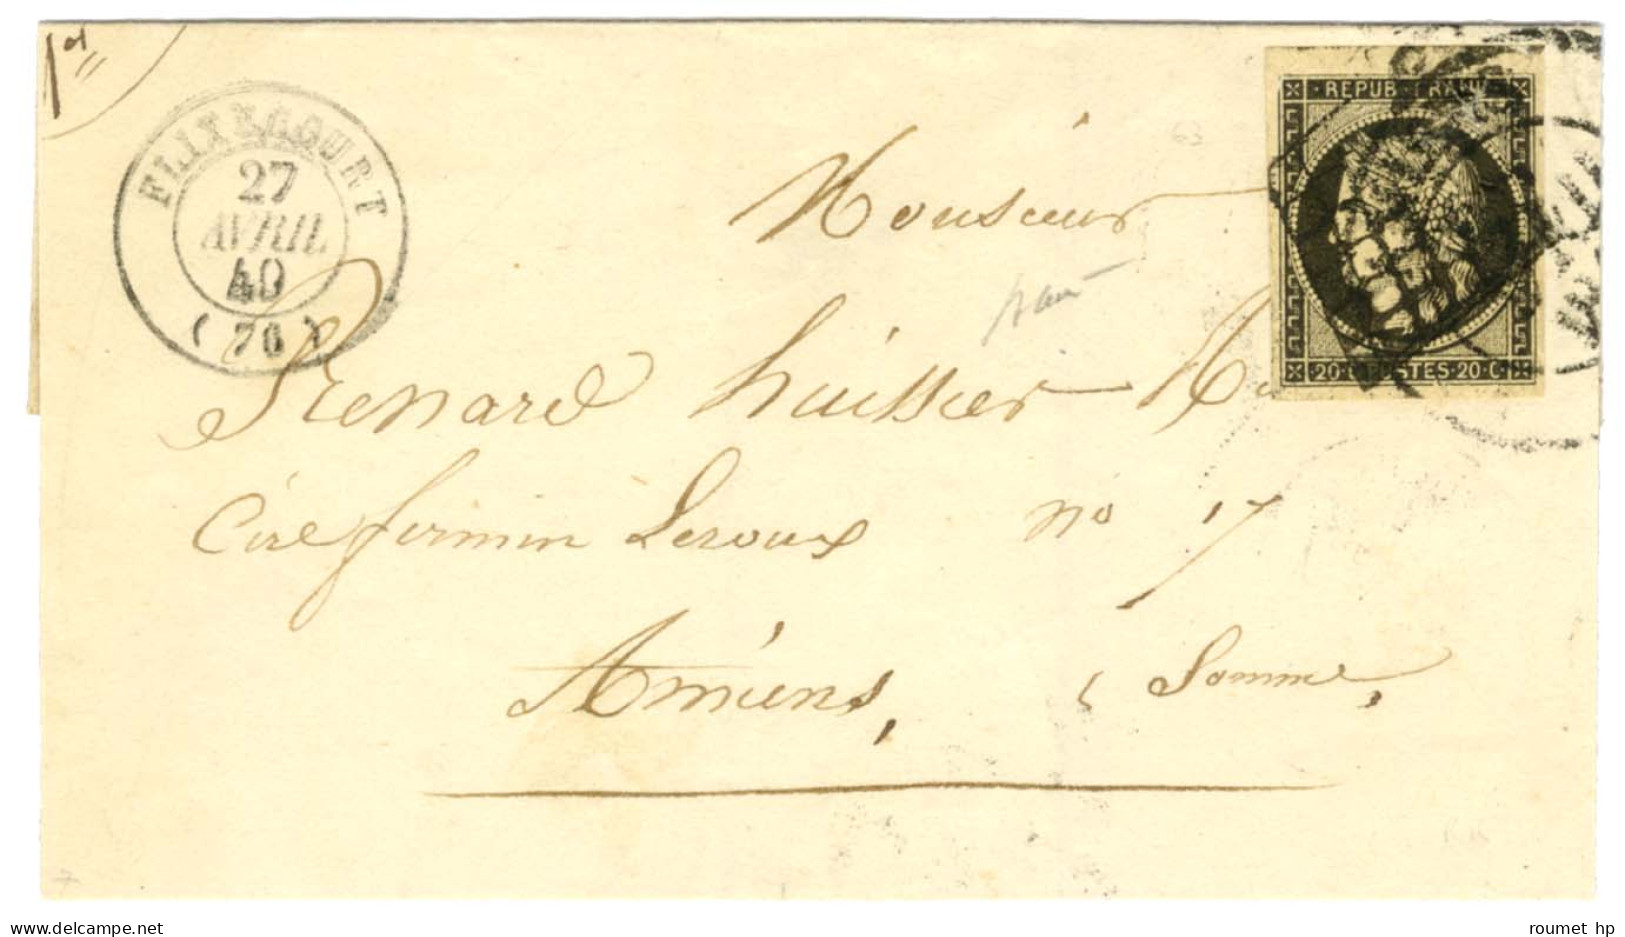 1er
FLIXECOURT
27
AVRIL
40
(76)
REPUB. FRANC
20.C POSTES.20.C
63
Monsieur
franc
Renard huissier Rue
Cire firmin Leroux no 17
Amiens, (Somme,
delcampe.net
roumet hp